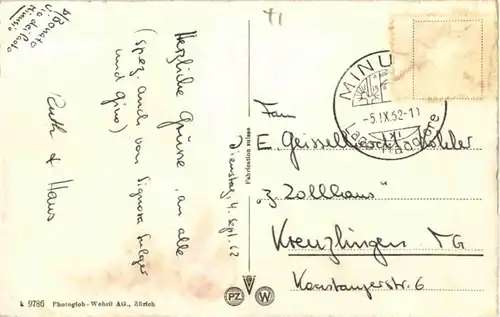 b/Donato
Via dei Paolo
Minusio
Herzliche Grüsse, an alle
(spez. auch von Signora Sulger
und Gino)
Ruth & Hans
Dienstag, 4. Sept. 62
Fabrication suisse
MINUSIO
-5.IX.62-11
Lago Maggiore
Fam
E. Geissel
"z. Zollhaus"
Kreuzlingen TG
Konstanzerstr. 6
k 9786 Photoglob-Wehrli AG., Zürich
PZ W